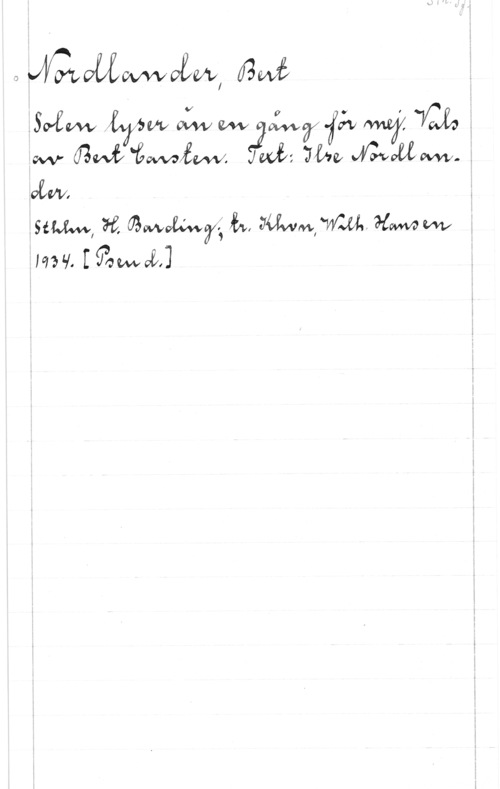 Nordlander, Bert
Solen lyser än en gång för mej. Vals
av Bert Carsten. Text: Ilse Nordlan-
der.
Sthlm, H. Barding; tr. Khvn, Wilh. Hansen
1934. [Pseud.]